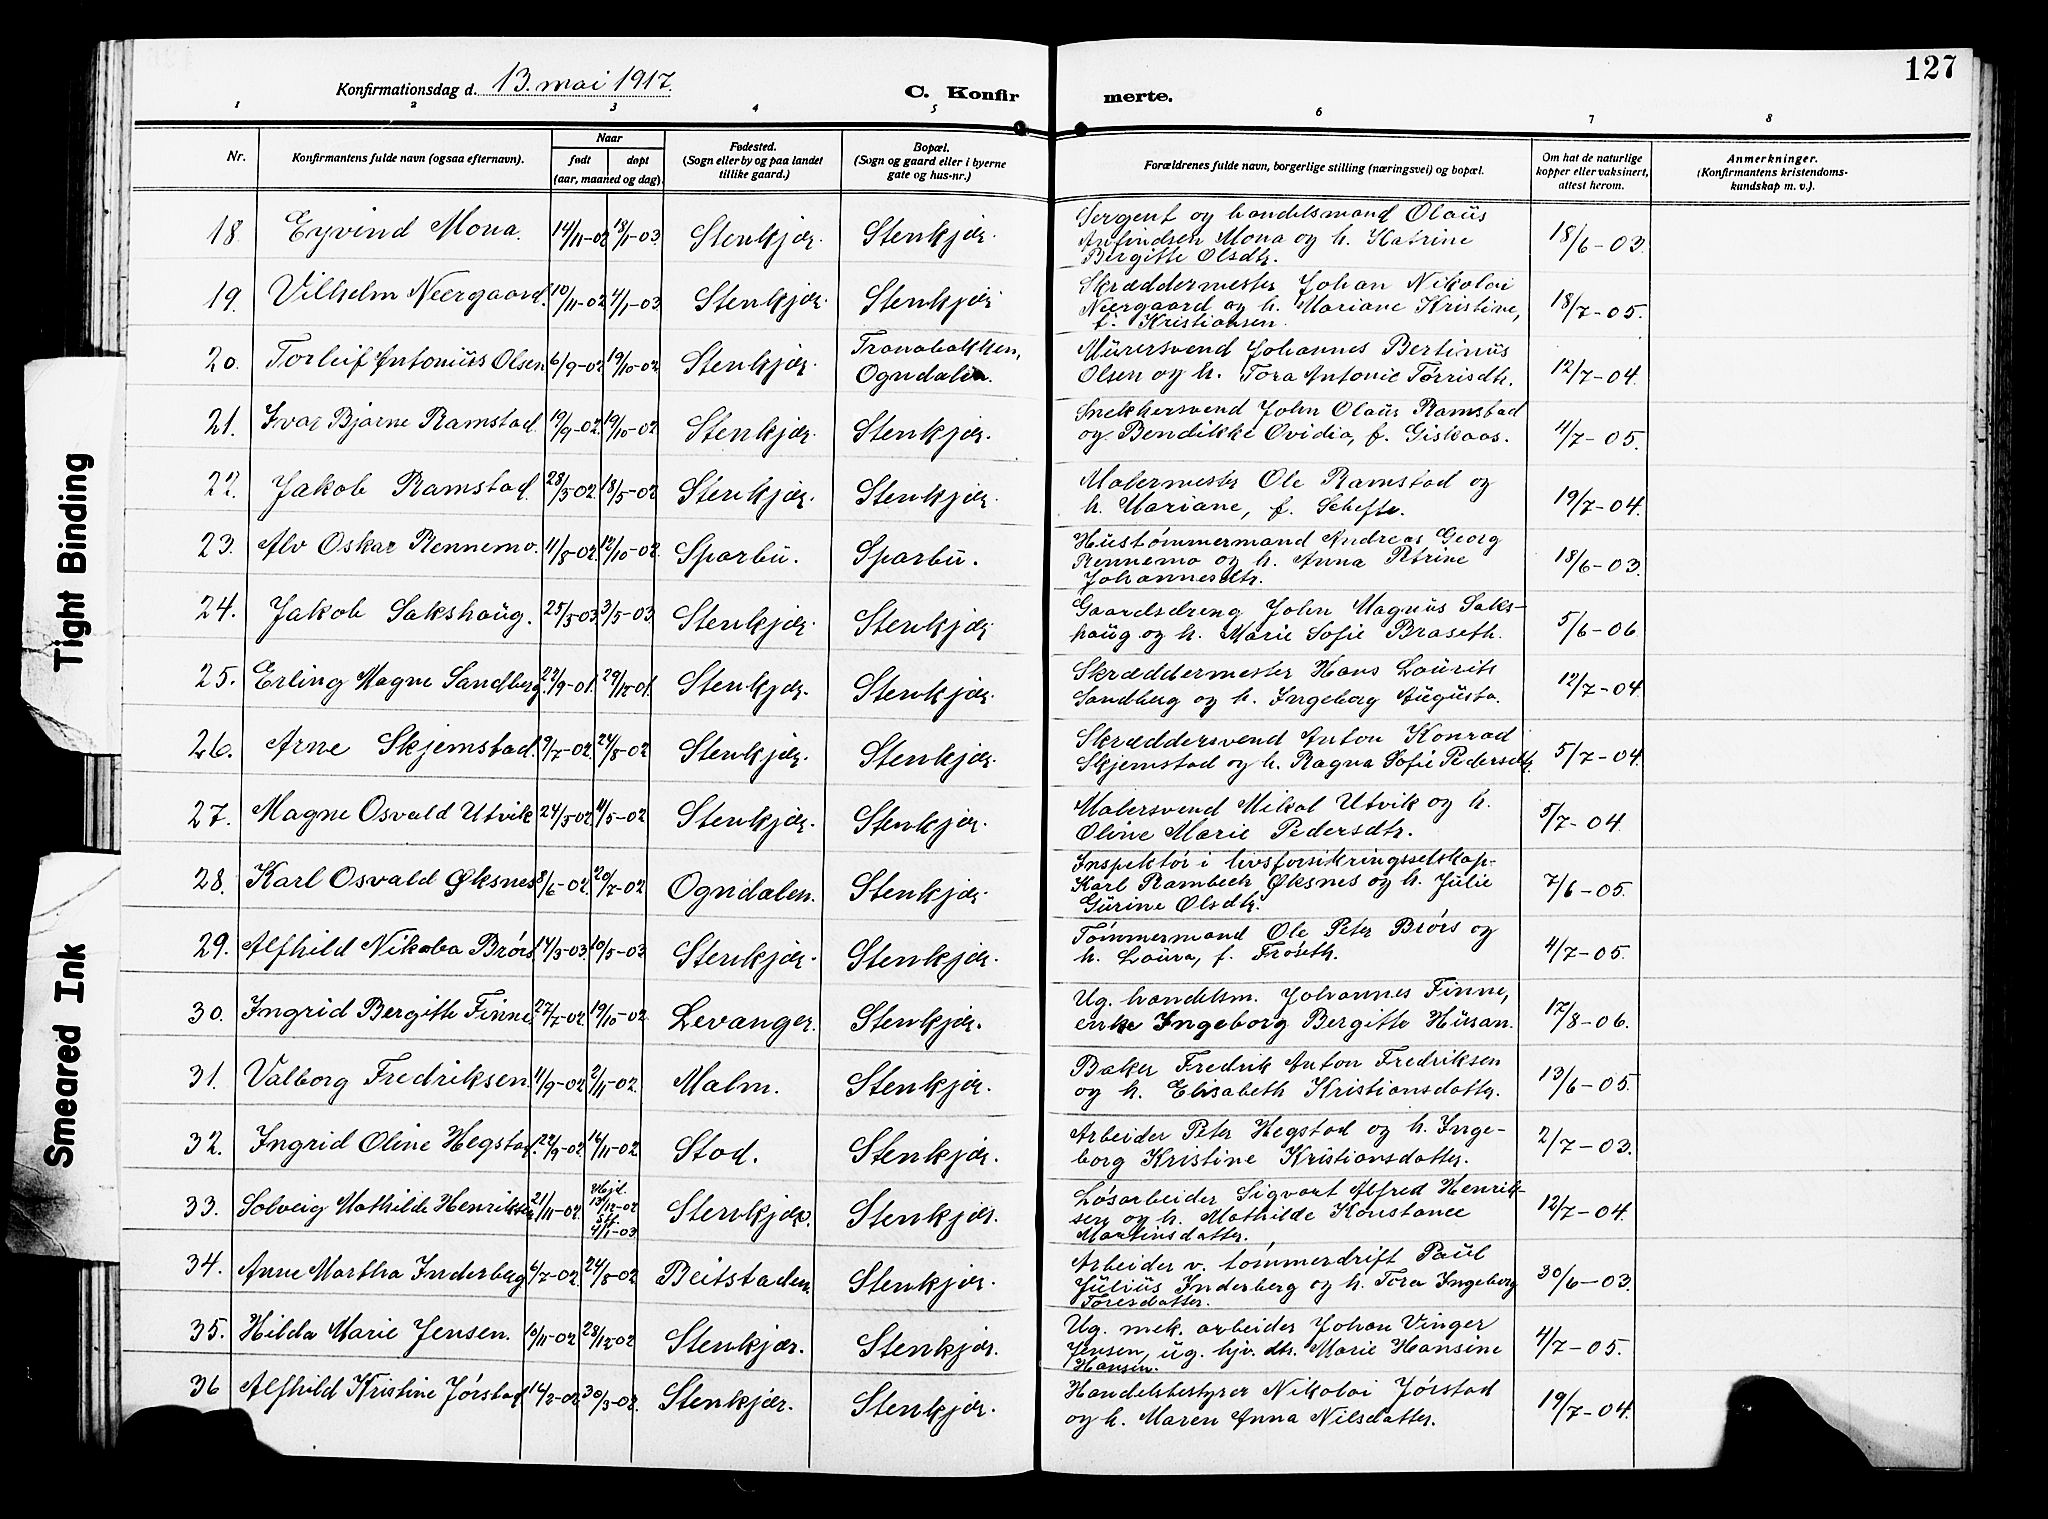 127
Konfirmationsdag d. 13. mai 1917.
C. Konfir merte.
1 2 3 4 5 6 7 8
Nr. Konfirmantens fulde navn (ogsaa efternavn). Naar født døpt (aar, maaned og dag). Fødested. (Sogn eller by og paa landet tillike gaard.) Bopæl. (Sogn og gaard eller i byerne gate og hus-nr.) Forældrenes fulde navn, borgerlige stilling (næringsvei) og bopæl. Om hat de naturlige kopper eller vaksinert, attest herom. Anmerkninger. (Konfirmantens kristendoms-kundskap m. v.).
18. Eyvind Mona. 14/11-02 18/1-03 Stenkjær. Stenkjær. Sergent og handelsmand Olaüs
Arfindsen Mona og h. Katrine 18/6-03.
Bergitte Olsdtr.
19. Vilhelm Neergaard. 10/11-02 4/1-03 Stenkjær. Stenkjær Skræddermester Johan Nikolai
Neergaard og h. Mariane Kristine, 18/7-05.
f. Kristiansen.
20. Torleif Antoniüs Olsen 6/9-02 19/10-02 Stenkjær. Tranabakken, Mürersvend Johannes Bertinüs
Ogndalen. Olsen og h. Tora Antonie Tørrisdtr. 12/7-04.
21. Ivar Bjarne Ramstad. 19/9-02. 19/10-02 Stenkjær. Stenkjær. Snekkersvend John Olaüs Ramstad
og Bendikke Ovidia, f. Giskaas. 4/7-05.
22. Jakob Ramstad. 28/3-02. 18/5-02 Stenkjær. Stenkjær. Malermester Ole Ramstad og
h. Mariane, f. Schefte. 19/7-04.
23. Alv Oskar Rennemo. 11/8-02. 12/10-02. Sparbü. Sparbü. Hüstømmermand Andreas Georg
Rennemo og h. Anna Petrine 18/6-03.
Johannesdtr.
24. Jakob Sakshaüg. 25/3-03 3/5-03 Stenkjær. Stenkjær Gaardsdreng John Magnüs Saks-
haüg og h. Marie Sofie Braseth. 5/6-06
25. Erling Magne Sandberg. 22/9-01. 29/12-01. Stenkjær. Stenkjær. Skræddermester Hans Laürits
Sandberg og h. Ingeborg Aügüsta. 12/7-04
26. Arne Skjemstad. 9/7-02. 24/8-02 Stenkjær. Stenkjær. Skræddersvend Anton Konrad
Skjemstad og h. Ragna Sofie Pedersdtr. 5/7-04.
27. Magne Osvald Utvik 24/3-02 4/5-02 Stenkjær. Stenkjær. Malersvend Mikal Utvik og h.
Oline Marie Pedersdtr. 5/7-04.
28. Karl Osvald Øksnes 8/6-02. 20/7-02 Ogndalen. Stenkjær. Inspektør i livsforsikringsselskap-
Karl Rambech Øksnes og h. Jülie 7/6-05.
Gürine Olsdtr.
29. Alfhild Nikoba Brørs 14/3-03. 10/5-03 Stenkjær. Stenkjær. Tømmermand Ole Peter Brørs og
h. Laüra, f. Frøseth. 4/7-05.
30. Ingrid Bergitte Finne. 27/7-02. 19/10-02. Levanger. Stenkjær. Ug. handelsm. Johannes Finne,
enke Ingeborg Bergitte Hüsan. 17/8-06.
31. Valborg Fredriksen. 11/9-02 2/11-02. Malm. Stenkjær. Baker Fredrik Anton Fredriksen
og h. Elisabeth Kristiansdatter. 13/6-05.
32. Ingrid Oline Hegstad. 22/9-02 16/11-02 Stod. Stenkjær. Arbeider Peter Hegstad og h. Inge-
borg Kristine Kristiansdatter. 2/7-03.
33. Solveig Mathilde Henriksen 21/11-02. Hjd. 13/12-02 Stf. 4/1-03 Stenkjær. Stenkjær. Løsarbeider Sigvart Alfred Henrik-
sen og h. Mathilde Konstance 12/7-04.
Martinsdatter.
34. Anne Martha Inderberg 6/7-02. 24/8-02 Beitstaden. Stenkjær. Arbeider v. tømmerdrift Paul
Jüliüs Inderberg og h. Tora Ingeborg 30/6-03.
Toresdatter.
35. Hilda Marie Jensen. 10/11-02 28/12-02 Stenkjær. Stenkjær. Ug. mek. arbeider Johan Vinger
Jensen, ug. hjv. dtr. Marie Hansine 4/7-05.
Hansen.
36 Alfhild Kristine Jørstad 14/2-02 30/3-02. Stenkjær. Stenkjær. Handelsbestyrer Nikolai Jørstad
og h. Maren Anna Nilsdatter. 19/7-04.
Tight Binding
Smeared Ink